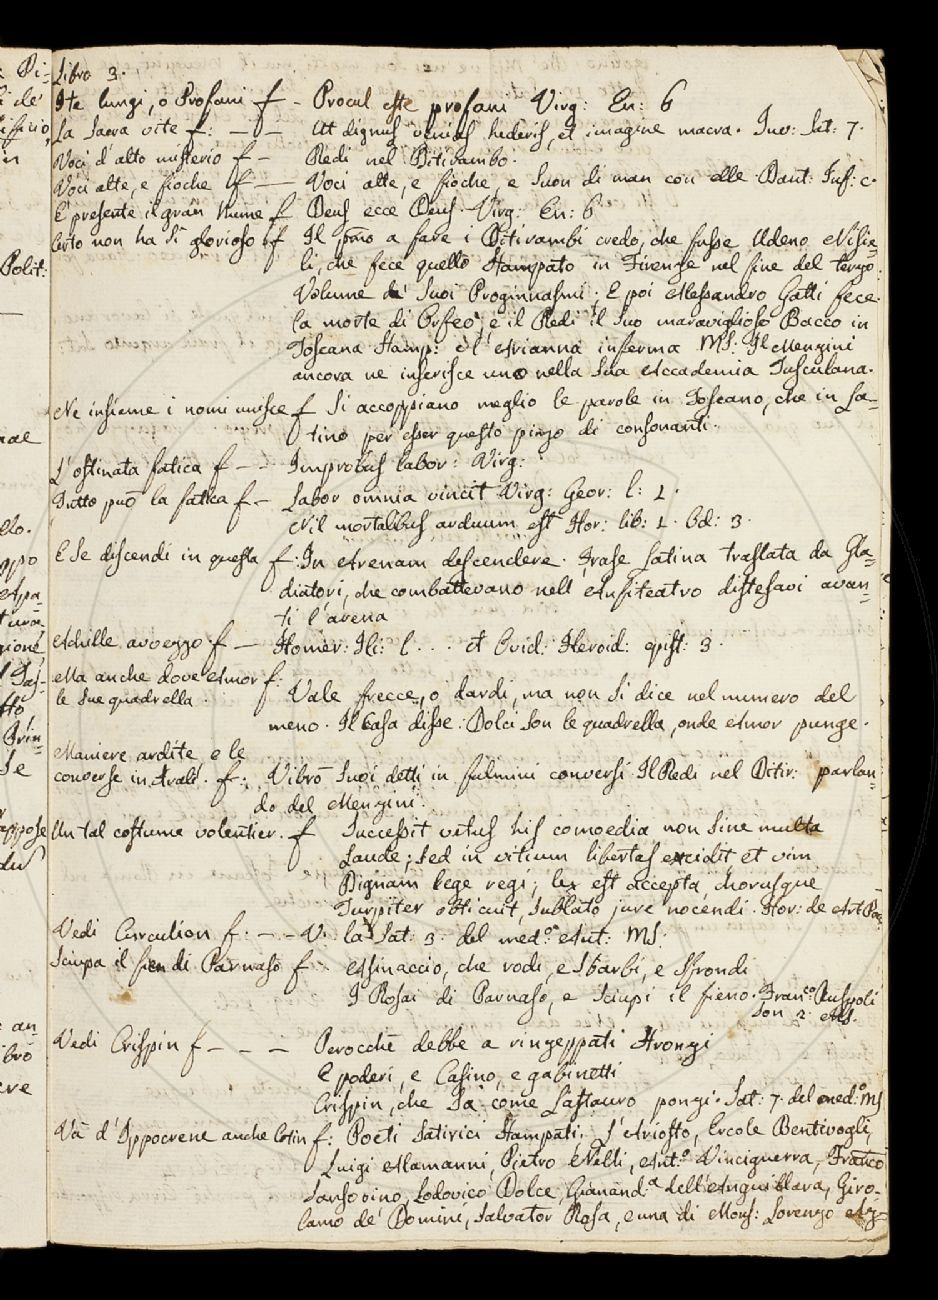 Libro 3.
Ite lungi, o Profani f - Procul este profani Virg: En: 6
La Sacra vite f: — — Ut dignus venias hederis, et imagine macra. Iuv: Sat: 7.
Voci d'alto misterio f — Redi nel Ditirambo.
Voci alte, e fioche f — Voci alte, e fioche, e Suon di man con elle Dant: Inf: c.
E presente il gran Nume f Deus ecce Deus. Virg: En: 6
Certo non ha sì glorioso f Il pmo a fare i Ditirambi credo, che fusse Udeno Nisie=
li, che fece quello Stampato in Firenze nel fine del terzo
Volume de' Suoi Proginnasmi; E poi Alessandro Gatti fece
la morte di Orfeo; e il Redi il Suo maraviglioso Bacco in
Toscana Stamp: e l'Arianna inferma MS: Il Menzini
ancora ne inserisce uno nella Sua Accademia Tusculana.
Ne insieme i nomi unisce f Si accoppiano meglio le parole in Toscano, che in La=
tino per esser questo pieno di consonanti.
L'ostinata fatica f — Improbus labor: Virg:
Tutto può la fatica f — Labor omnia vincit Virg: Geor: l: 1.
Nil mortalibus arduum est Hor: lib: 1. Od: 3.
E Se discendi in questa f: In Arenam descendere. Frase Latina traslata da Gla=
diatori, che combattevano nell'Anfiteatro distesavi avan=
ti l'arena
Achille avvezzo f — Homer: Ili: l . . . et Ovid: Heroid: epist: 3.
Ma anche dove Amor f:
le sue quadrella. Vale frecce, o dardi, ma non Si dice nel numero del
meno. Il Casa disse: Dolci Son le quadrella, onde Amor punge.
Maniere ardite, e le
converse in strali. f: Vibrò Suoi detti in fulmini conversi Il Redi nel Ditir: parlan=
do del Menzini.
Un tal costume volentier. f Successit vetus his comoedia non Sine multa
Laude; Sed in vitium libertas excidit et vim
Dignam lege regi; lex est accepta, chorusque
Turpiter obticuit, Sublato jure nocendi. Hor: de Art Poe
Vedi Curculion f: — — V. la Sat: 3. del med.º Aut: MS:
Sciupa il fien di Parnaso f Asinaccio, che rodi, e Sbarbi, e Sfrondi
I Rosai di Parnaso, e Sciupi il fieno. Franco Ruspoli
Son 2. MS.
Vedi Crispin f — — — Perocchè debbe a ringeppati Stronzi
E poderi, e Casino, e gabinetti
Crispin, che Sa come Lastauro pongi. Sat: 7 del med.º MS
Và d'Ippocrene anche Cotin f: Poeti Satirici Stampati. L'Ariosto, Ercole Bentivogli,
Luigi Alamanni, Pietro Nelli, Ant.º Vinciguerra, Franco
Sansovino, Lodovico Dolce, Gianand.ª dell'Anguillara, Giro=
lamo de' Domini, Salvator Rosa, e una di Mons: Lorenzo Az=